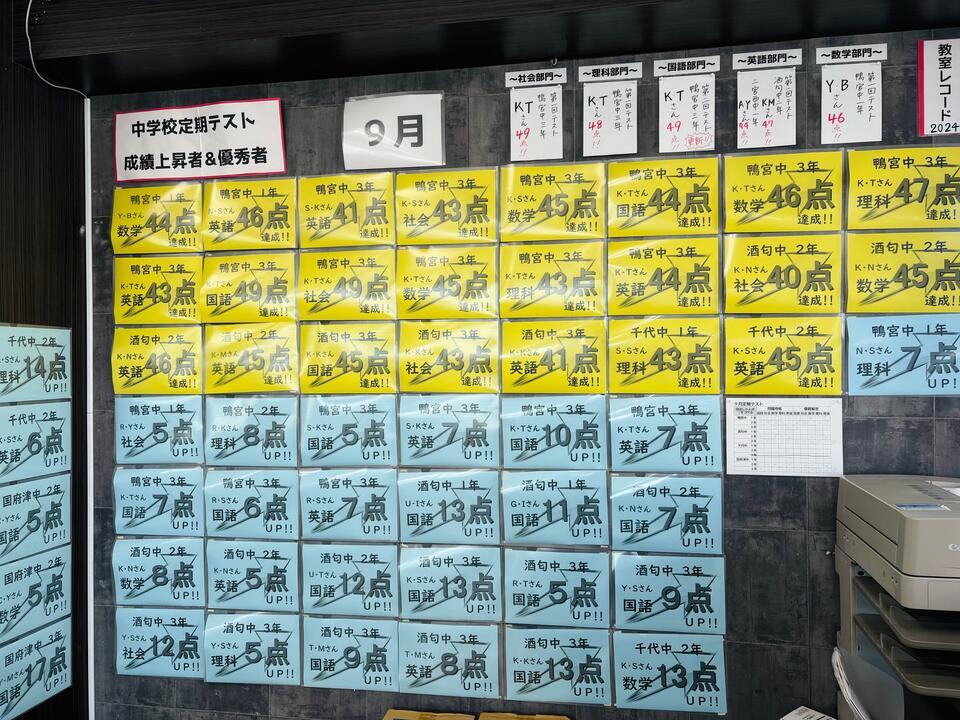 中学校定期テスト
成績上昇者&優秀者
9月
～社会部門～
第一回テスト
鴨宮中三年
KTさん
49点!!
～理科部門～
第一回テスト
鴨宮中三年
KTさん
48点!!
～国語部門～
第二回テスト
鴨宮中三年
KTさん
49点!!
更新!!
～英語部門～
第一回テスト
KMさん
47点!!
二宮西中一年
AYさん
～数学部門～
第一回テスト
鴨宮中一年
Y・Bさん
46点!!
教室レコード
2024
鴨宮中 1年
Y・Bさん
数学44点
達成!!
鴨宮中 1年
N・Sさん
英語46点
達成!!
鴨宮中 3年
S・Kさん
英語41点
達成!!
鴨宮中 3年
K・Sさん
社会43点
達成!!
鴨宮中 3年
K・Sさん
数学45点
達成!!
鴨宮中 3年
K・Tさん
国語44点
達成!!
鴨宮中 3年
K・Tさん
数学46点
達成!!
鴨宮中 3年
K・Tさん
理科47点
達成!!
鴨宮中 3年
K・Tさん
英語43点
達成!!
鴨宮中 3年
K・Tさん
国語49点
達成!!
鴨宮中 3年
K・Tさん
社会49点
達成!!
鴨宮中 3年
K・Tさん
数学45点
達成!!
鴨宮中 3年
K・Tさん
理科43点
達成!!
鴨宮中 3年
K・Tさん
英語44点
達成!!
酒匂中 2年
K・Nさん
社会40点
達成!!
酒匂中 2年
K・Nさん
数学45点
達成!!
酒匂中 2年
K・Nさん
英語46点
達成!!
酒匂中 2年
K・Mさん
英語45点
達成!!
酒匂中 3年
K・Kさん
国語45点
達成!!
酒匂中 3年
K・Kさん
社会43点
達成!!
酒匂中 3年
K・Kさん
英語41点
達成!!
千代中 1年
S・Sさん
理科43点
達成!!
千代中 2年
K・Sさん
英語45点
達成!!
鴨宮中 1年
N・Sさん
理科7点
UP!!
鴨宮中 1年
R・Yさん
社会5点
UP!!
鴨宮中 2年
R・Kさん
理科8点
UP!!
鴨宮中 3年
S・Kさん
国語5点
UP!!
鴨宮中 3年
S・Kさん
英語7点
UP!!
鴨宮中 3年
K・Tさん
国語10点
UP!!
鴨宮中 3年
K・Tさん
英語7点
UP!!
9月定期テスト
鴨宮中 3年
K・Tさん
国語7点
UP!!
鴨宮中 3年
R・Sさん
国語6点
UP!!
鴨宮中 3年
R・Sさん
英語7点
UP!!
酒匂中 1年
U・Iさん
国語13点
UP!!
酒匂中 1年
G・Iさん
国語11点
UP!!
酒匂中 2年
K・Nさん
国語7点
UP!!
酒匂中 2年
K・Nさん
数学8点
UP!!
酒匂中 2年
K・Nさん
英語5点
UP!!
酒匂中 3年
U・Tさん
国語12点
UP!!
酒匂中 3年
K・Sさん
国語13点
UP!!
酒匂中 3年
R・Tさん
国語5点
UP!!
酒匂中 3年
Y・Sさん
国語9点
UP!!
酒匂中 3年
Y・Sさん
社会12点
UP!!
酒匂中 3年
Y・Sさん
理科5点
UP!!
酒匂中 3年
T・Mさん
国語9点
UP!!
酒匂中 3年
T・Mさん
英語8点
UP!!
酒匂中 3年
K・Kさん
国語13点
UP!!
千代中 2年
K・Sさん
数学13点
UP!!
千代中 2年
K・Sさん
理科14点
UP!!
千代中 2年
K・Sさん
英語6点
UP!!
国府津中 2年
国語5点
UP!!
国府津中 2年
数学5点
UP!!
国府津中 3年
Y・Mさん
国語17点
UP!!